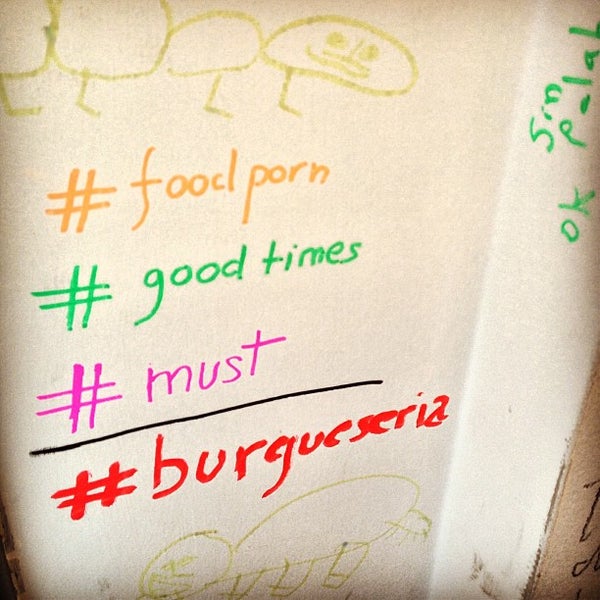 # foodporn
# good times
# must
#burgueseria
ok
sin